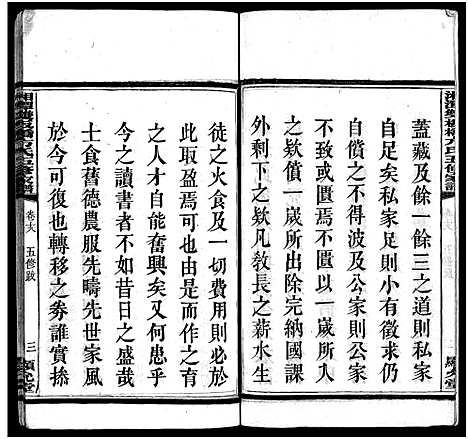 蓋藏及餘一餘三之道則私家
自足矣私家足則小有徵求仍
自償之不得波及公家則公家
不致或匱焉不匱以一歲所人
之數償一歲所出除完納國
外剩存幾凡敎長之薪水生
徒之火食及一切費用則必於
此取盈焉可也由是而作之育
之人才自能奮興矣又何患乎
今之讀書者不如昔日之盛哉
士食舊德農服先疇先世家風
於今可復也轉移之券誰實操
卷六 五修跋
三